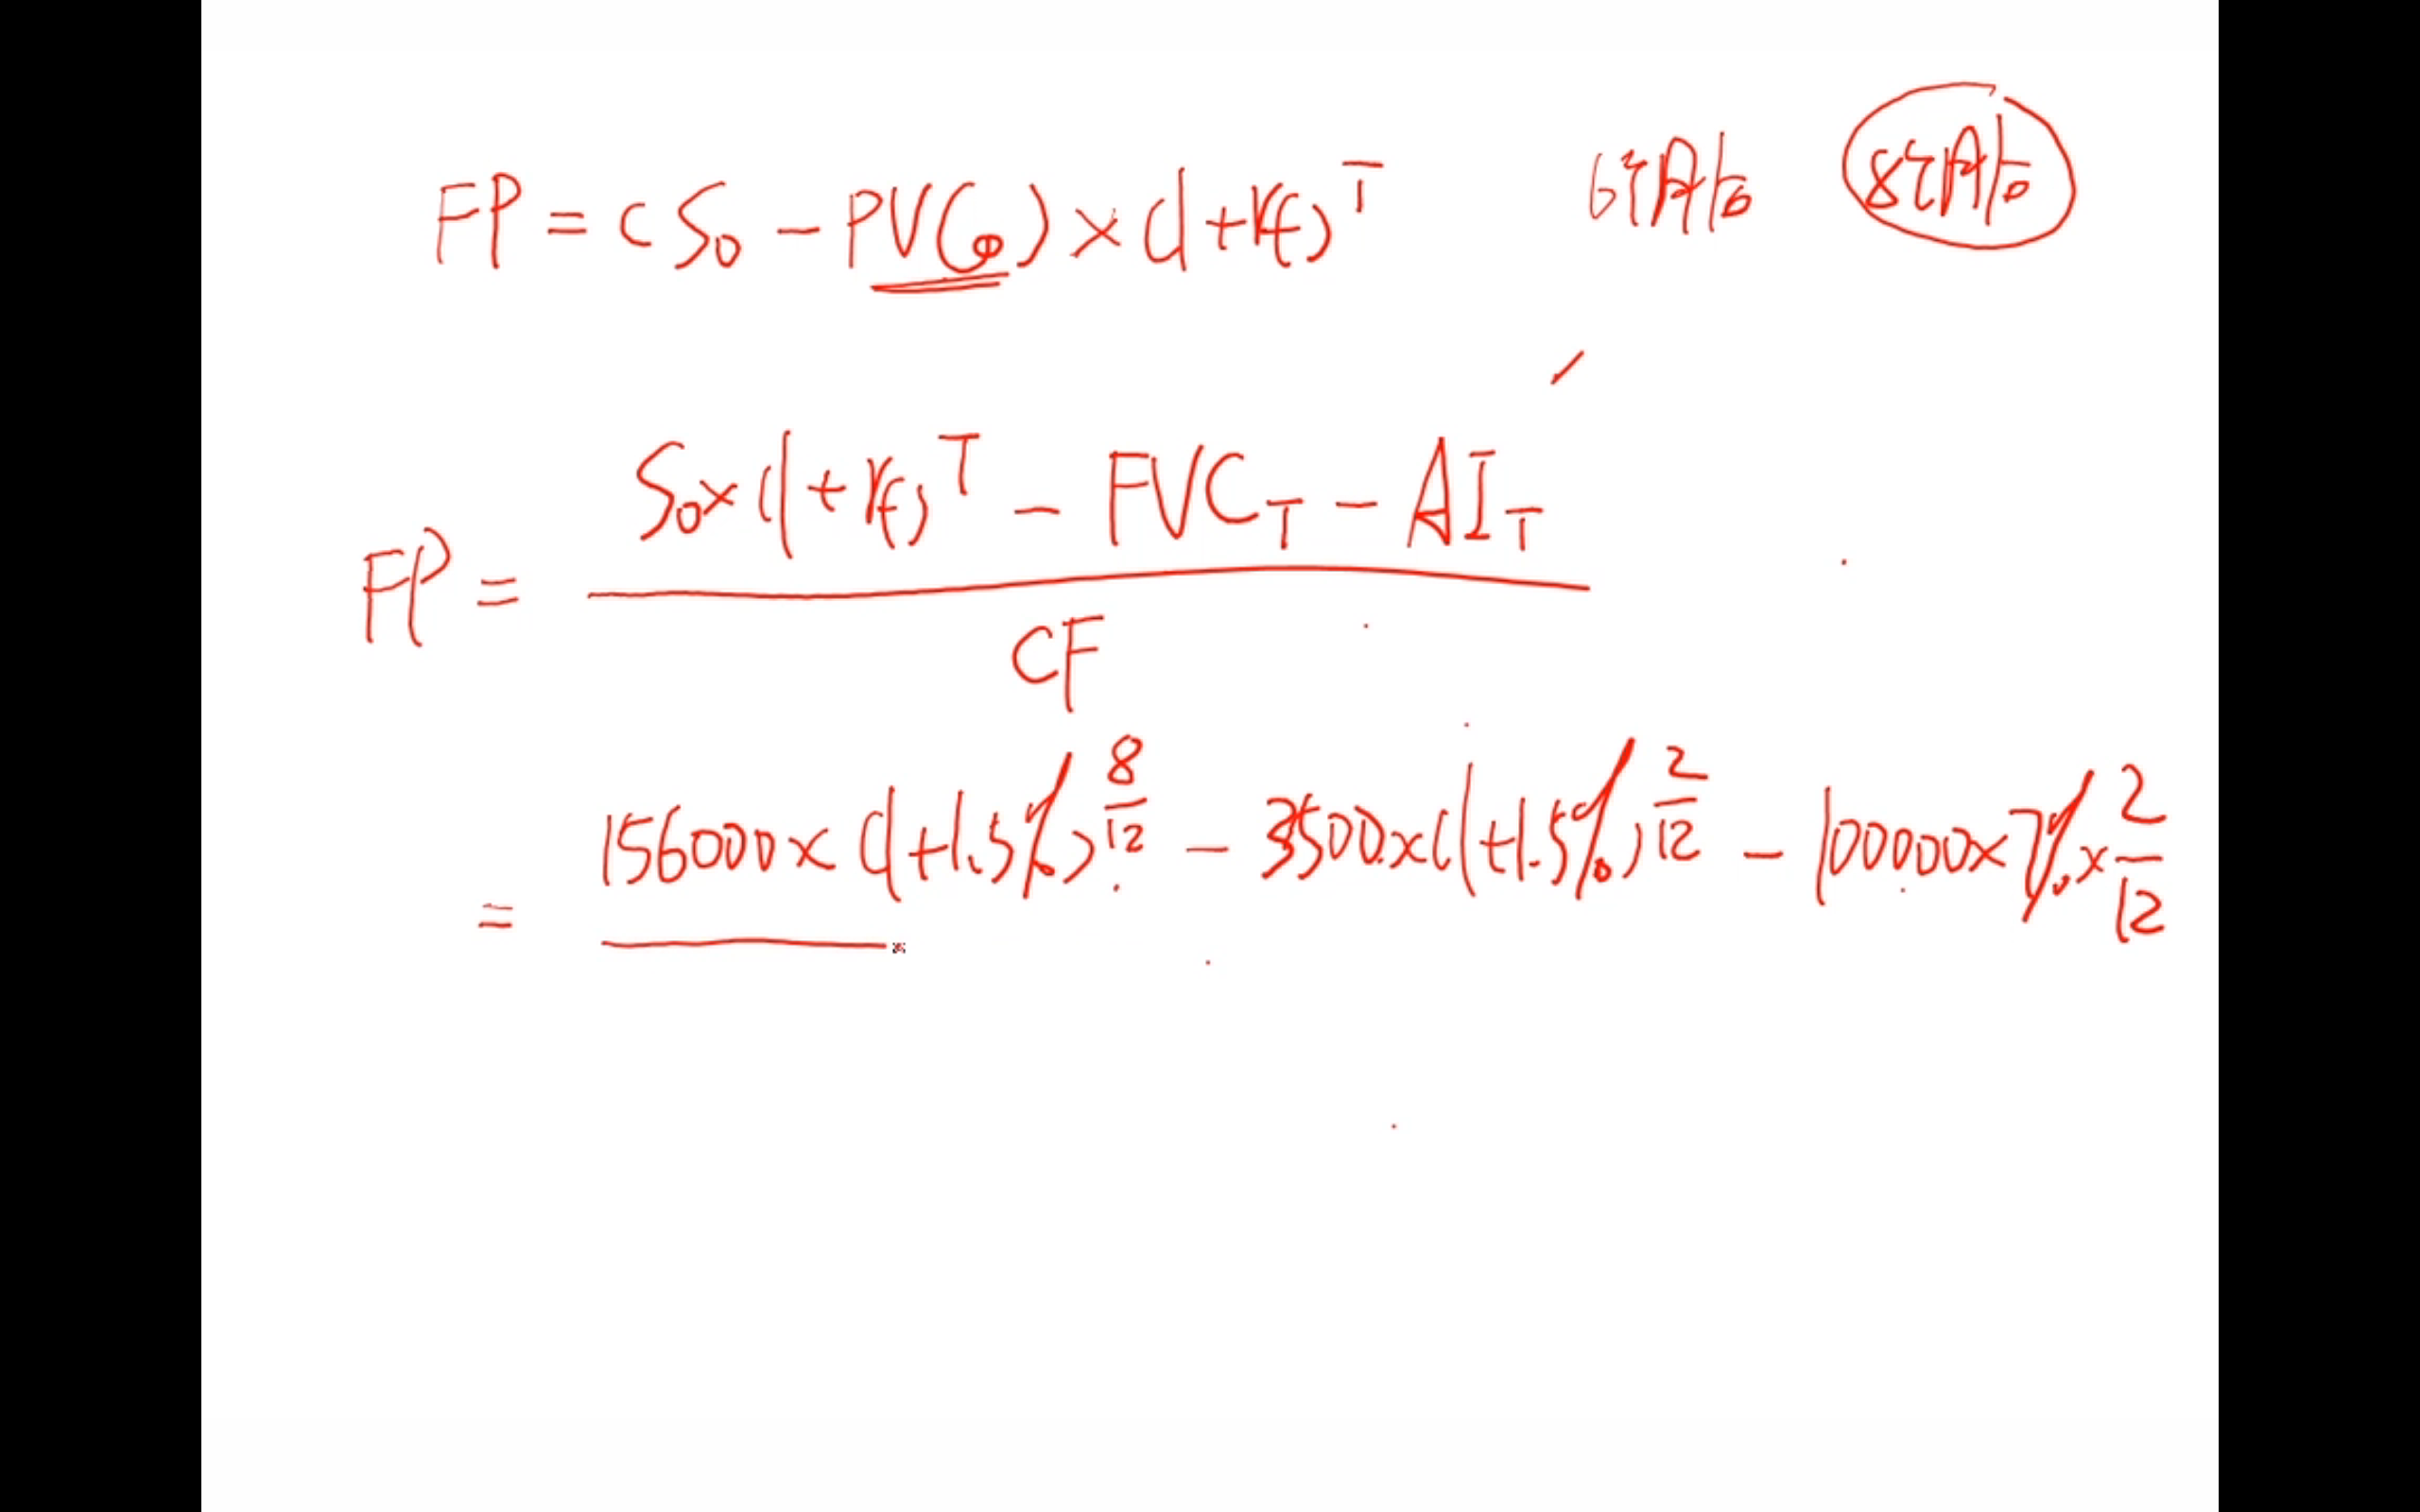 FP = (S₀ - PVC₀) × (1+rf)ᵀ 6个月后 8个月后
S₀×(1+rf)ᵀ - FVC_T - AI_T
FP =
CF
156000×(1+1.5%)^8/12 - 3500×(1+1.5%)^2/12 - 100000×7%×2/12
=